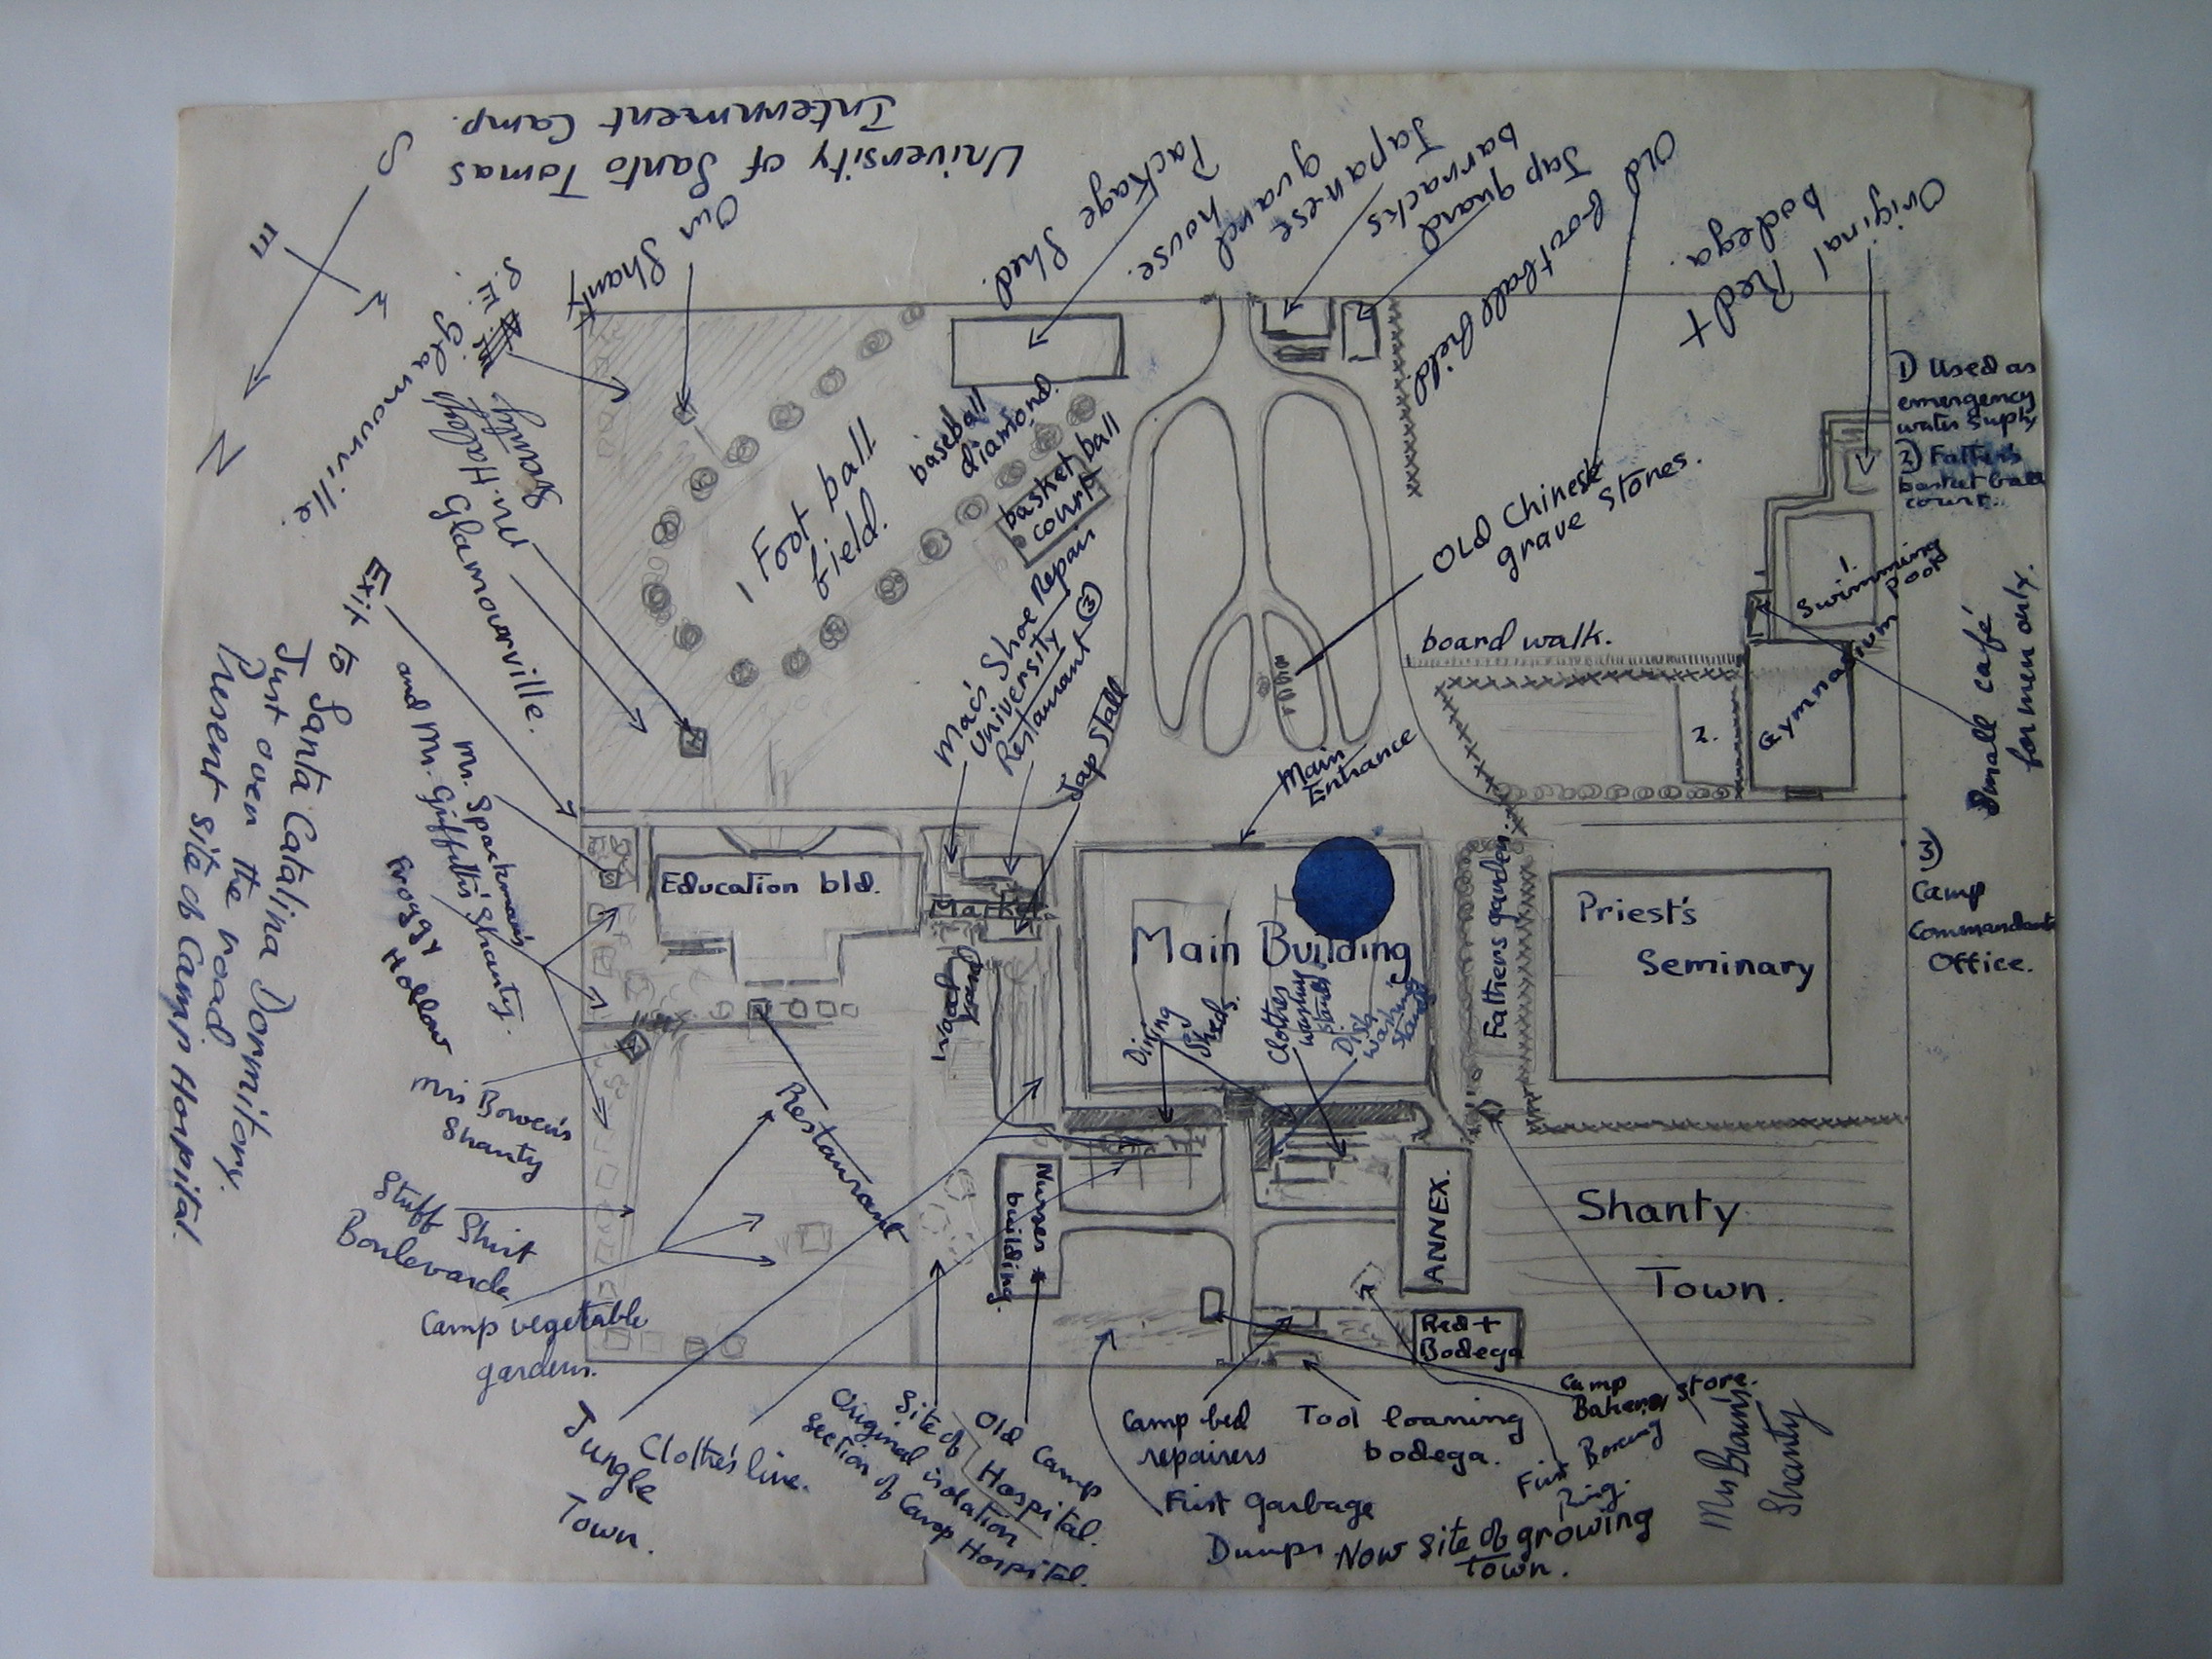 University of Santo Tomas
Internment Camp.
S
E
N
Our Shanty
Package Shed.
Japanese
guard
house.
Jap guard
barracks
Old football field.
Original Red +
bodega.
S.E.
Shanty.
Glamourville.
Glamourville.
Foot ball
field.
baseball
diamond.
basket ball
court
Mac's Shoe Repair
University
Restaurant ③
Jap Stall
Main
Entrance
Old Chinese
grave stones.
board walk.
1.
Swimming
pool
2.
Gymnasium
1) Used as
emergency
water supply
2) Father's
basket ball
court.
Small café
for men only.
3)
Camp
Commandant
Office.
Exit to Santa Catalina Dormitory.
Just over the road
Present site of Camp Hospital.
Mr. Spackman's
and Mr. Griffith's Shanty.
Froggy
Hollow
Education bld.
Market
Main Building
Dining
Sheds.
Clothes
washing
stands
Dish
washing
stands
Fathers garden.
Priest's
Seminary
Mrs Bowen's
Shanty
Stuff Shirt
Boulevarde
Camp vegetable
gardens.
Restaurant
Nurses
building.
ANNEX.
Shanty
Town.
Red +
Bodega
Jungle
Town.
Clothe's line.
Site of
Original isolation
section of Camp Hospital.
Old Camp
Hospital.
Camp bed
repairers
Tool loaning
bodega.
Camp
Bakery store.
First Boxing
Ring.
First garbage
Dumps. Now site of growing
Town.
Shanty